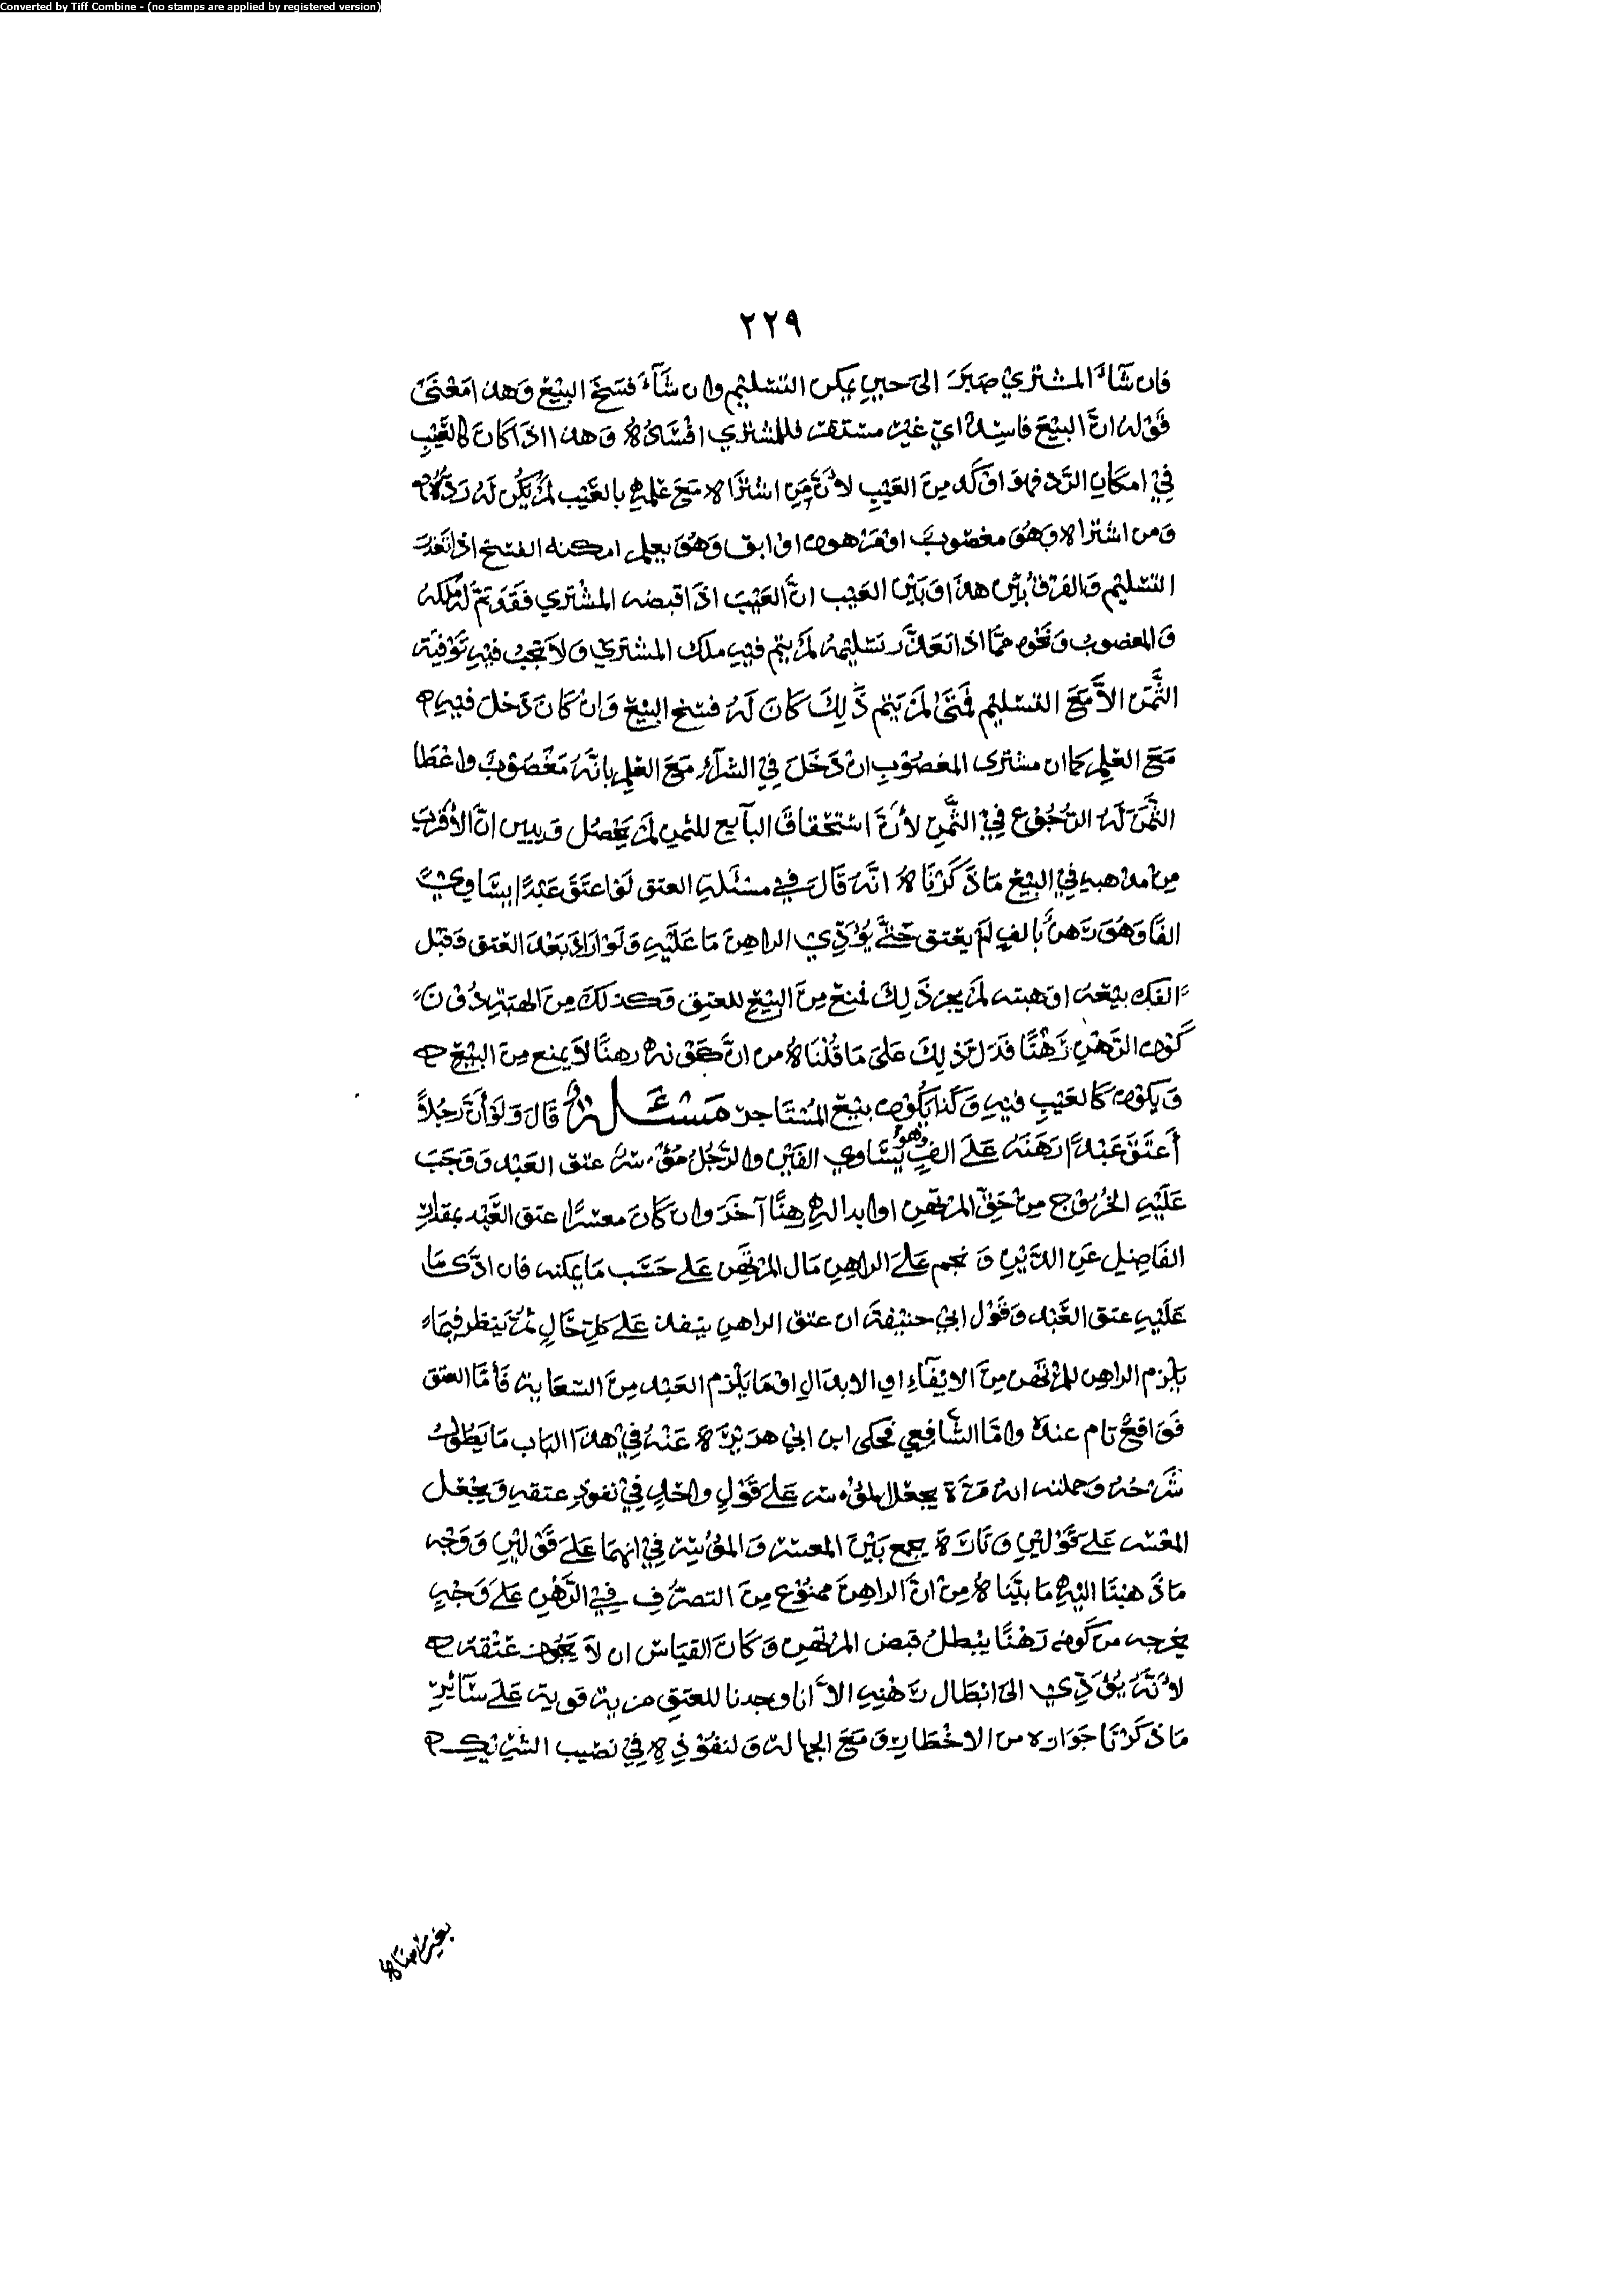 Converted by Tiff Combine - (no stamps are applied by registered version)
٢٢٩
فان شاء المشتري صبر الى حين يمكن التسليم وان شاء فسخ البيع وهذا معنى
قوله ان البيع فاسد اي غير مستقر فللمشتري افساده وهذا اذا كان كالعيب
في امكان الرد فهو اوكد من العيب لأن من اشتراه مع علمه بالعيب لم يكن له رده
ومن اشتراه وهو مغصوب او مرهون او ابق وهو يعلم امكنه الفسخ اذا تعذر
التسليم والفرق بين هذا وبين العيب ان العيب اذا قبضه المشتري فقد تم له ملكه
والمغصوب ونحوه مما اذا تعذر تسليمه لم يتم فيه ملك المشتري ولا يجب فيه توفية
الثمن الا مع التسليم فمتى لم يتم ذلك كان له فسخ البيع وان كان دخل فيه
مع العلم كما ان مشتري المغصوب ان دخل في الشراء مع العلم بانه مغصوب واعطا
الثمن له الرجوع في الثمن لأن استحقاق البآيع للثمن لم يحصل ويبين ان الأقرب
من مذهبه في البيع ما ذكرناه انه قال في مسئلة العتق لو اعتق عبدا يساوي
الفا وهو رهن بالف لم يعتق حتى يؤدي الراهن ما عليه ولو اراد بعد العتق وقبل
الفك بيعه او هبته لم يجز ذلك فمنع من البيع للعتق وكذلك من الهبة دون
كون الرهن رهنا فدل ذلك على ما قلناه من ان كونه رهنا لا يمنع من البيع
ويكون كالعيب فيه وكذا يكون بيع المستاجر مسئلة قال ولو أن رجلا
أعتق عبدا رهنه على الف وهو يساوي الفين والرجل موسر عتق العبد ووجب
عليه الخروج من حق المرتهن او ابداله رهنا آخر وان كان معسرا عتق العبد بمقدار
الفاضل عن الدين و نجم على الراهن مال المرتهن على حسب ما يمكنه فان ادى ما
عليه عتق العبد وقول ابي حنيفة ان عتق الراهن ينفذ على كل حال ثم ينظر فيما
يلزم الراهن للمرتهن من الايفاء او الابدال او ما يلزم العبد من السعاية فأما العتق
فواقع تام عنده واما الشافعي فحكى ابن ابي هريرة عنه في هذا الباب ما يطول
شرحه وجملته انه مرة يجعل الموسر على قول واحد في نفوذ عتقه ويجعل
المعسر على قولين وتارة يجمع بين المعسر والموسر في انهما على قولين ووجه
ما ذهبنا اليه ما بيناه من ان الراهن ممنوع من التصرف في الرهن على وجه
يخرجه من كونه رهنا يبطل قبض المرتهن وكان القياس ان لا يجوز عتقه
لأنه يؤدي الى ابطال رهنه الا أنا وجدنا للعتق مزية قوية على سائر
ما ذكرنا جوازه من الاخطار ومع الجهالة ولنفوذه في نصيب الشريك
بغير رضاه